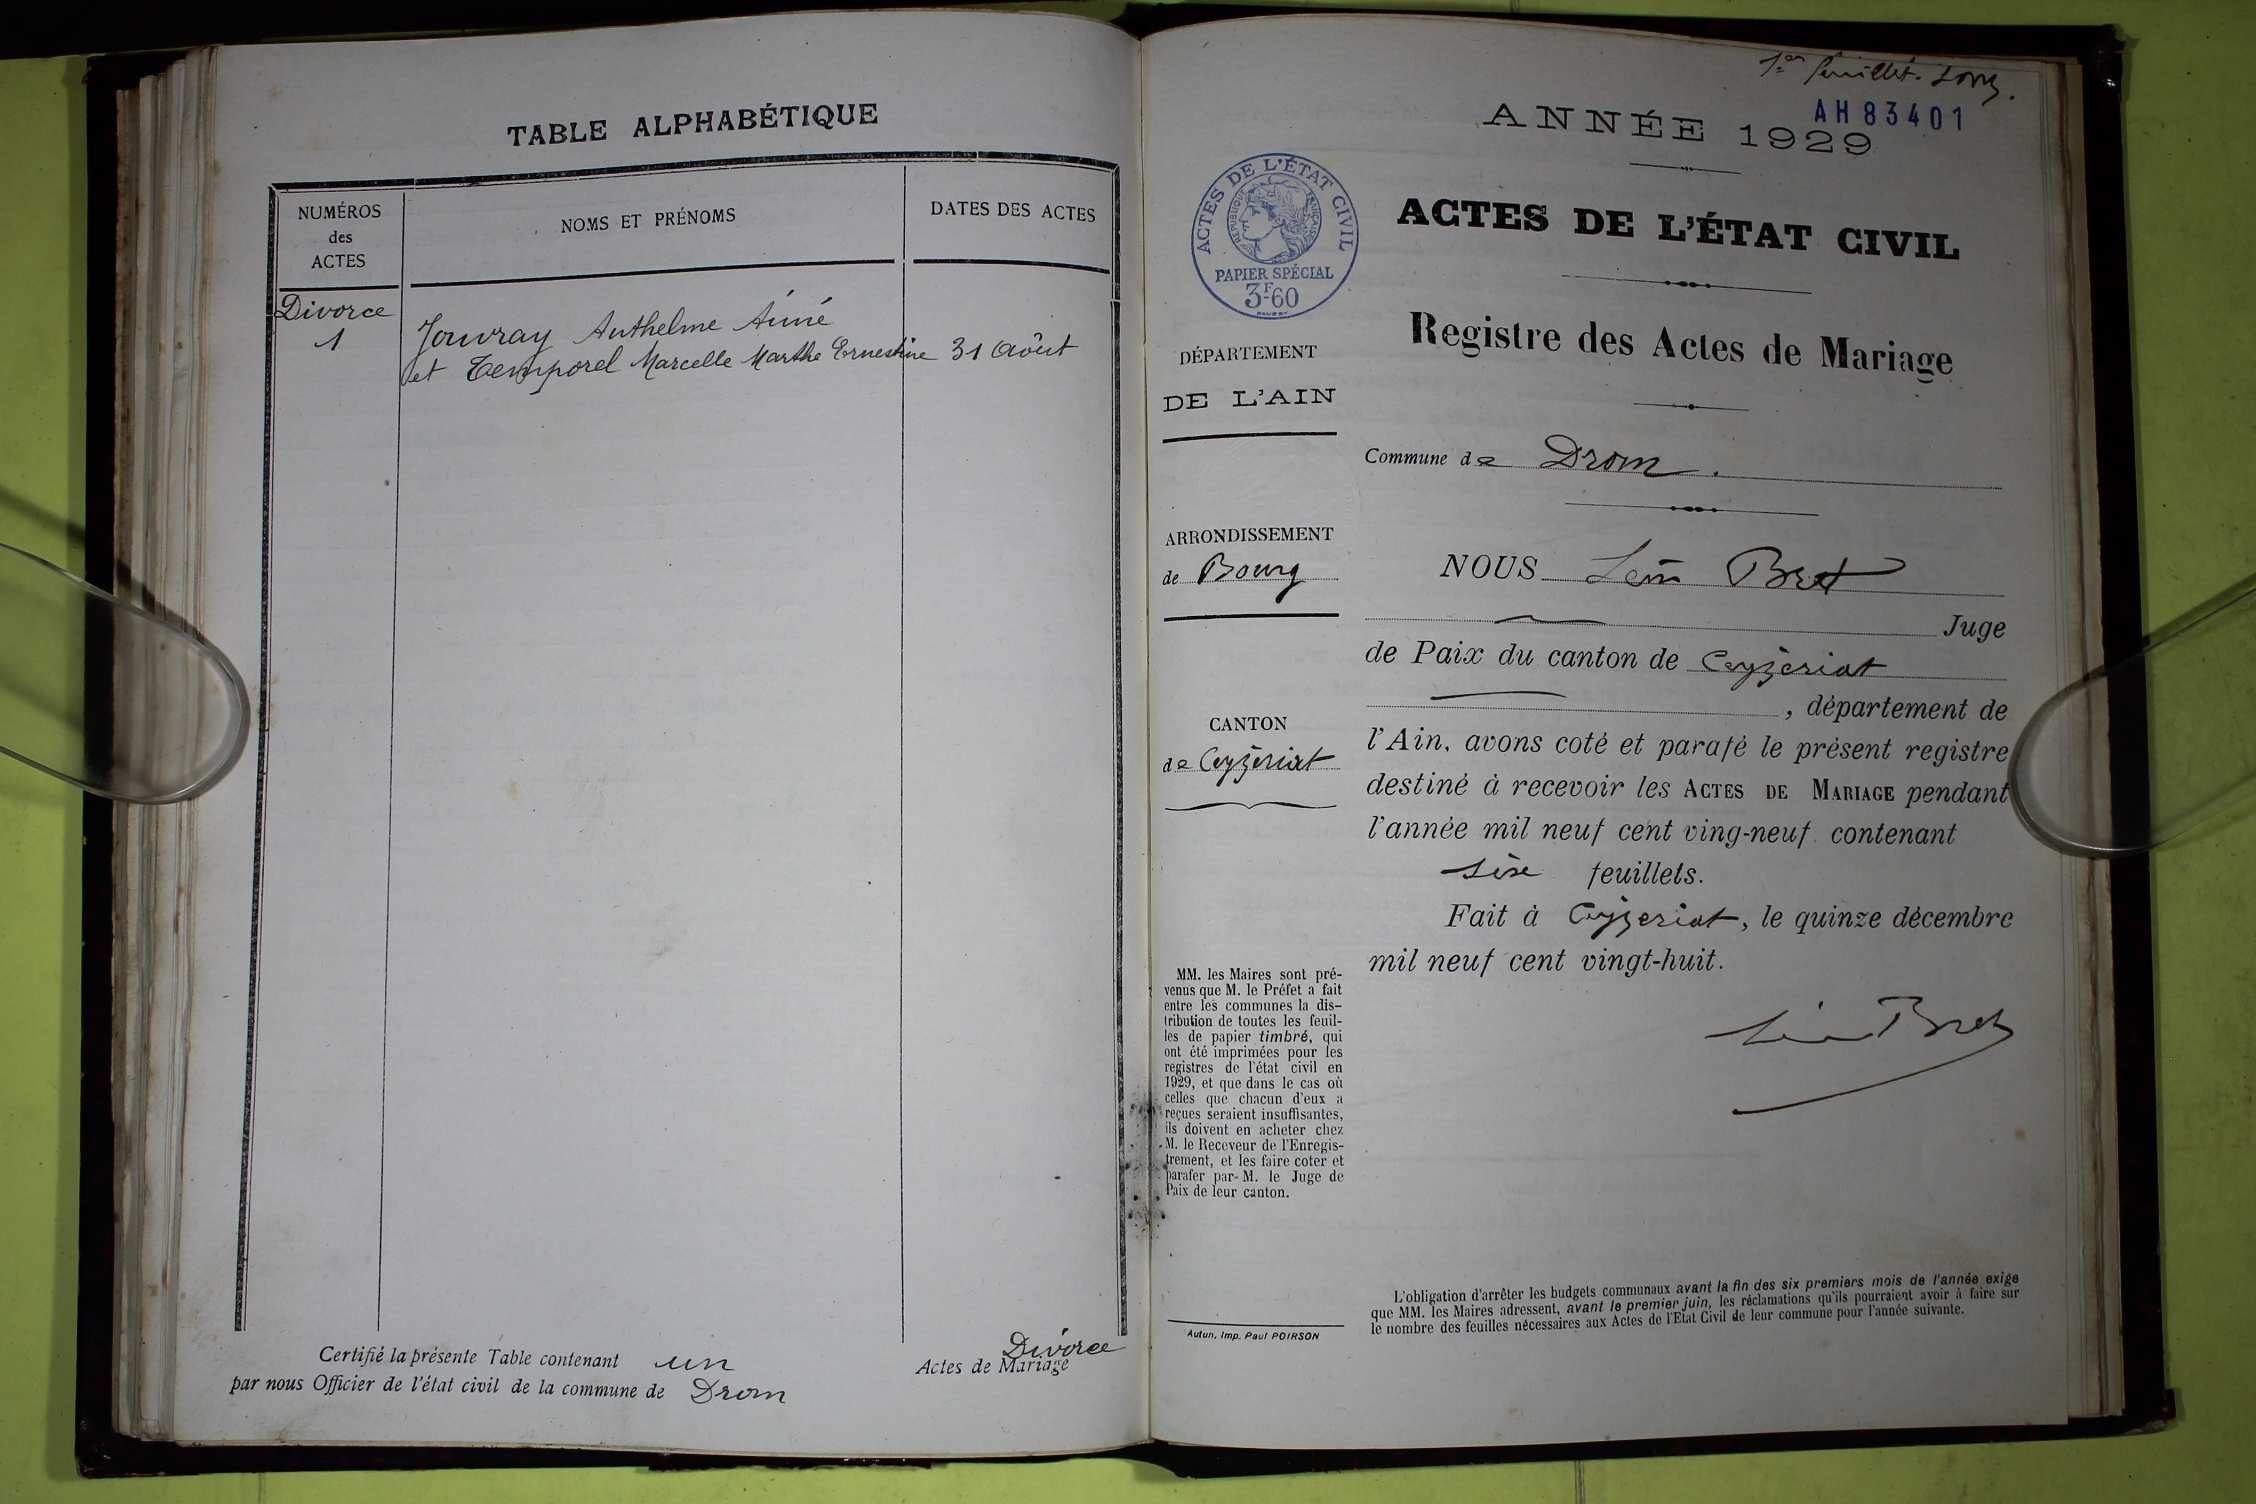 TABLE ALPHABÉTIQUE
NUMÉROS
des
ACTES
NOMS ET PRÉNOMS
DATES DES ACTES
Divorce
1
Jouvray Anthelme Aimé
et Temporel Marcelle Marthe Ernestine 31 Août
Certifié la présente Table contenant un
Divorce
Actes de Mariage
par nous Officier de l'état civil de la commune de Drom
1er feuillet.
AH 83401
ANNÉE 1929
ACTES DE L'ÉTAT CIVIL
RÉPUBLIQUE FRANÇAISE
PAPIER SPÉCIAL
3F-60
ACTES DE L'ÉTAT CIVIL
Registre des Actes de Mariage
DÉPARTEMENT
DE L'AIN
Commune de Drom.
ARRONDISSEMENT
de Bourg
CANTON
de Ceyzériat
NOUS Léon Bret
Juge
de Paix du canton de Ceyzériat
, département de
l'Ain, avons coté et parafé le présent registre
destiné à recevoir les ACTES DE MARIAGE pendant
l'année mil neuf cent ving-neuf contenant
feuillets.
Fait à Ceyzeriat, le quinze décembre
mil neuf cent vingt-huit.
Léon Bret
MM. les Maires sont pré-
venus que M. le Préfet a fait
entre les communes la dis-
tribution de toutes les feuil-
les de papier timbré, qui
ont été imprimées pour les
registres de l'état civil en
1929, et que dans le cas où
celles que chacun d'eux a
reçues seraient insuffisantes,
ils doivent en acheter chez
M. le Receveur de l'Enregis-
trement, et les faire coter et
parafer par M. le Juge de
Paix de leur canton.
Autun, Imp. Paul POIRSON
L'obligation d'arrêter les budgets communaux avant la fin des six premiers mois de l'année exige
que MM. les Maires adressent, avant le premier juin, les réclamations qu'ils pourraient avoir à faire sur
le nombre des feuilles nécessaires aux Actes de l'Etat Civil de leur commune pour l'année suivante.